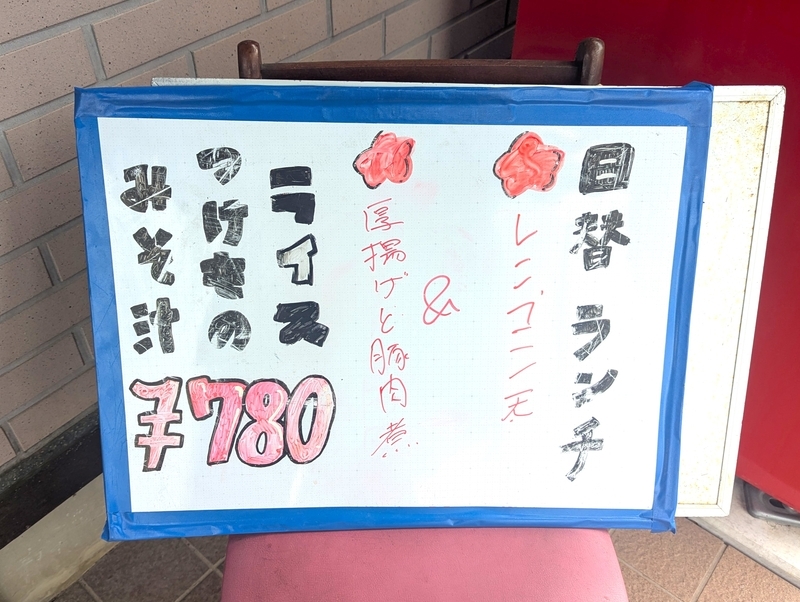 日替ランチ
レンコン天
&
厚揚げと豚肉煮
ライス
つけもの
みそ汁
¥780